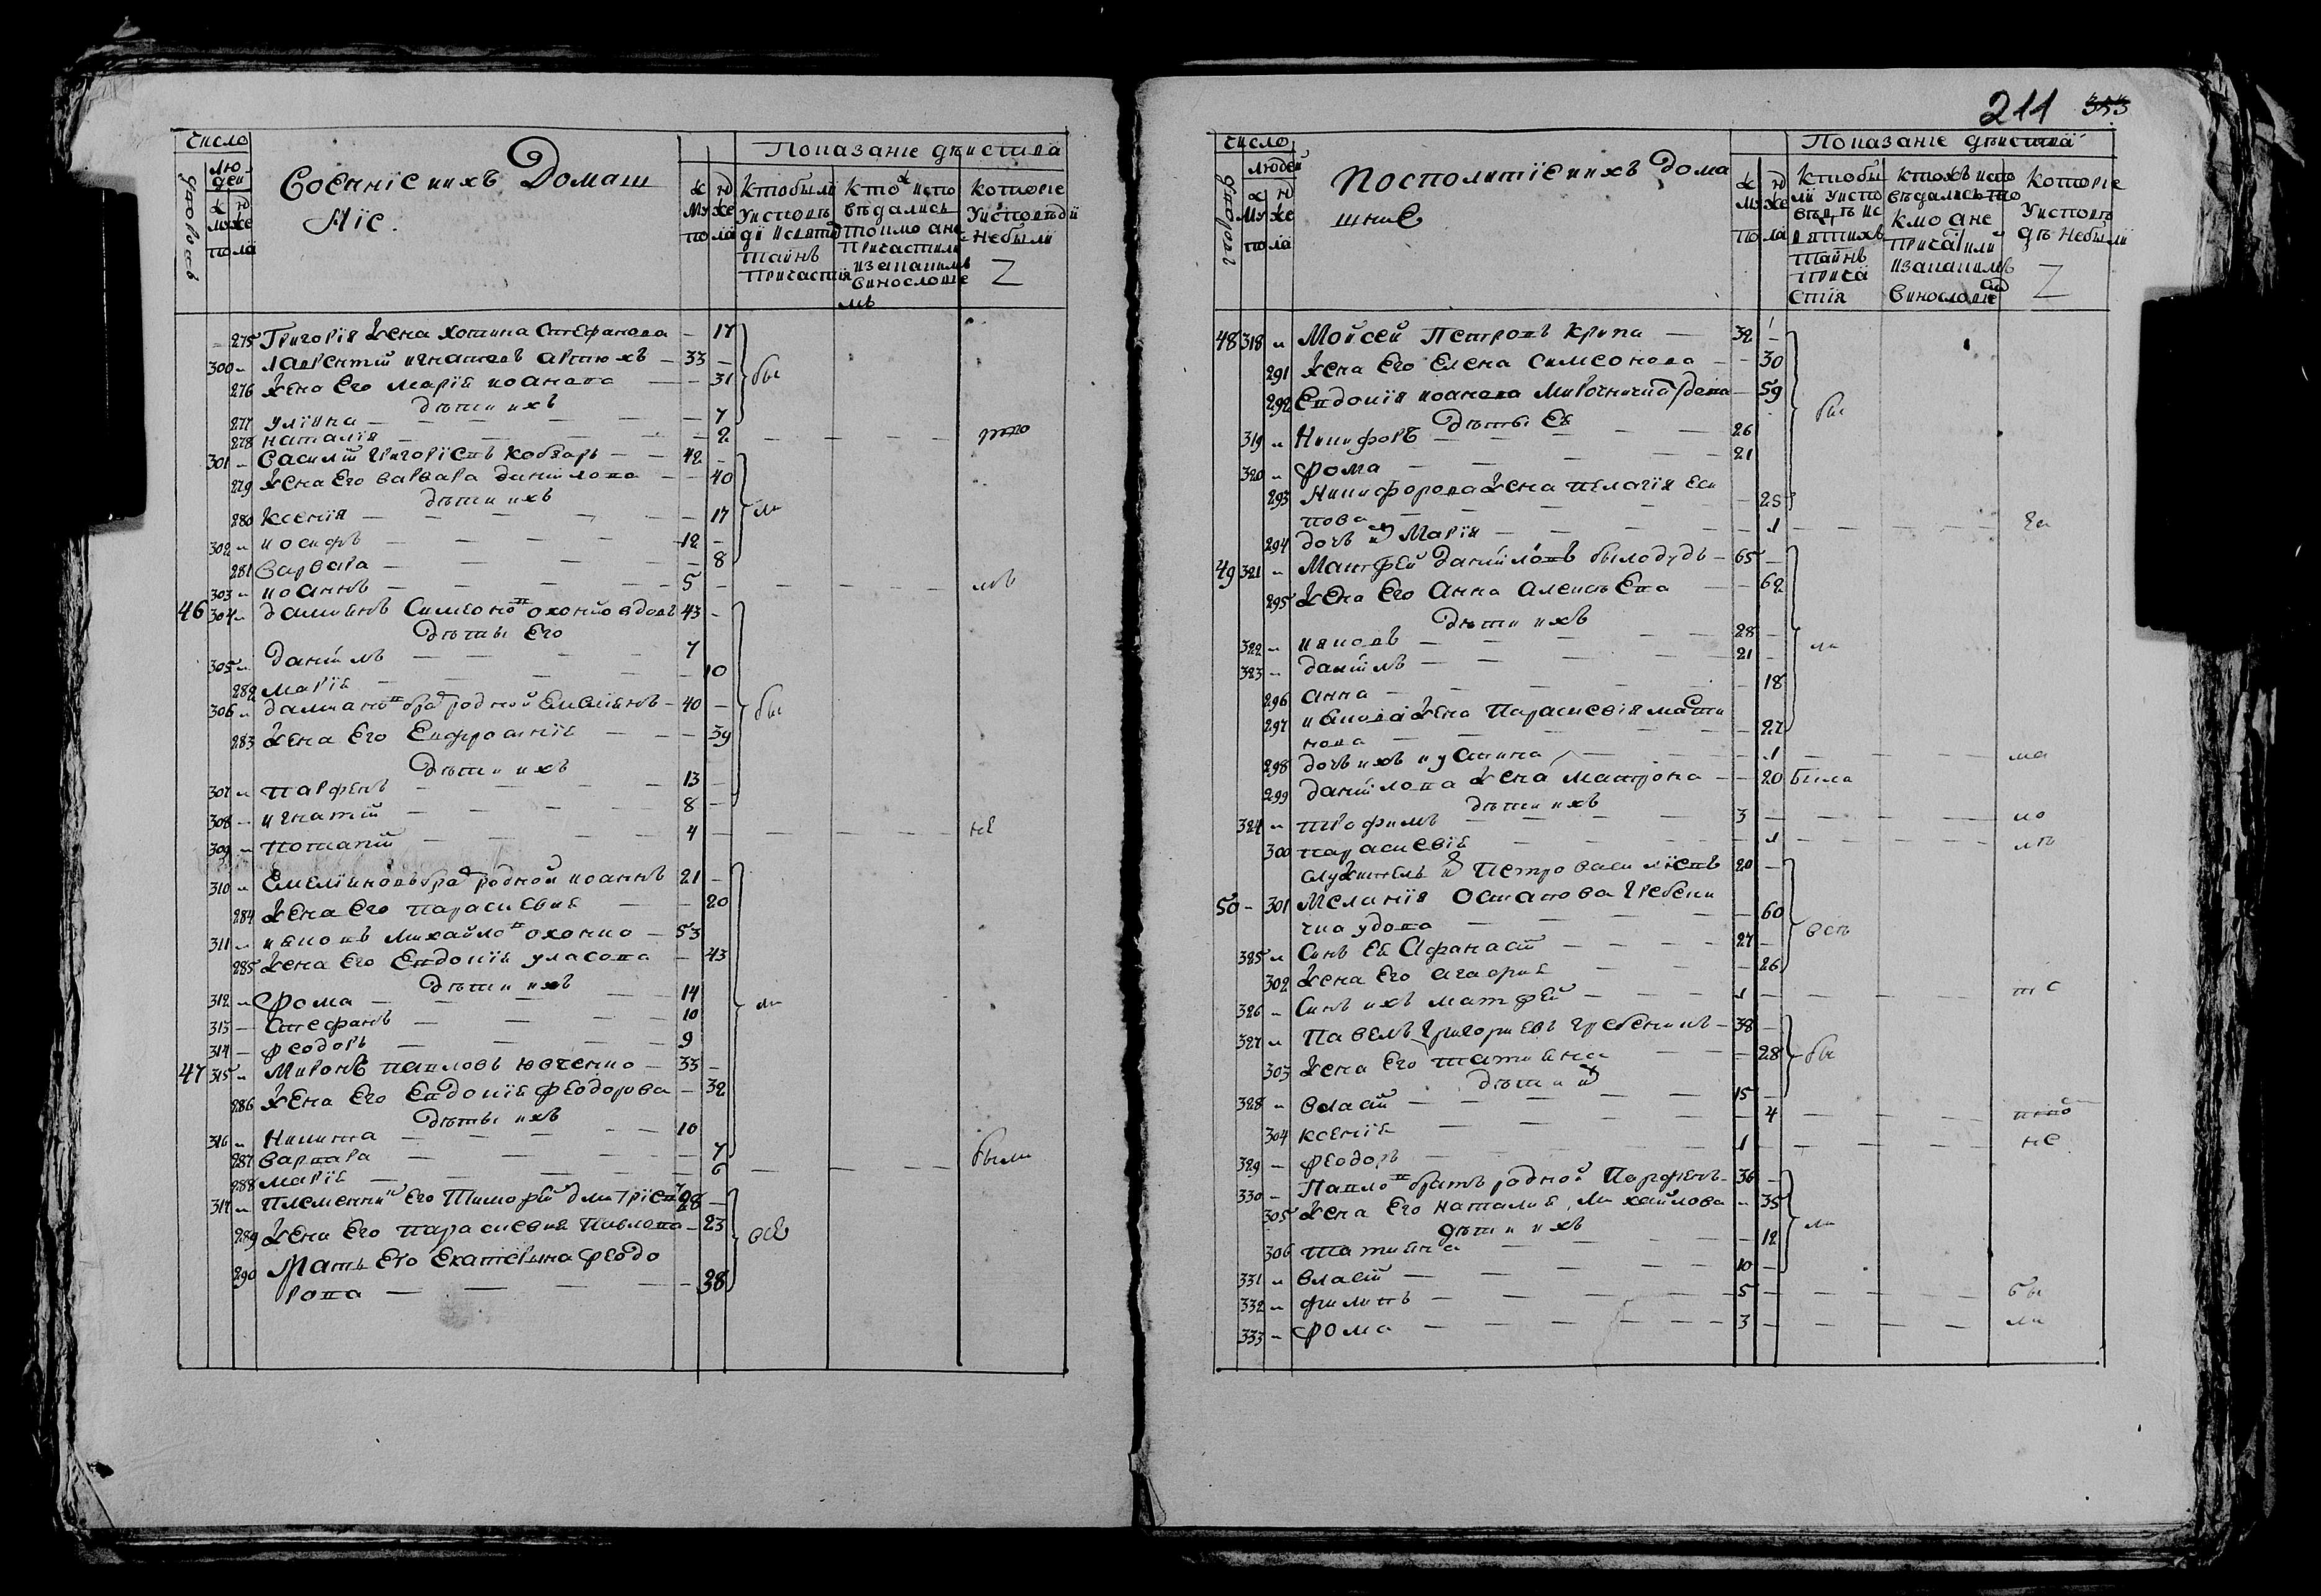 число
людей
дворовъ
муже
пола
Военніе и ихъ Домаш
ніе.
Муже
пола
Показаніе дѣиства
Кто были у исповѣди и святыхъ таинъ причастія
Кто исповѣдались толко а не причастились и за какимъ винословіемъ
Которіе у исповѣди не были
275 Григорія жена хотина Стефанова — 17
300 Лаврентій игнатовъ артюхъ — 33
276 жена Его Марія иоанова — 31 бы
дѣти ихъ
277 уліяна — 7
278 наталія — 2
301 Василій Григоріевъ кобзарь — 42
279 жена Его варвара даниілова — 40
дѣти ихъ
280 Ксенія — 17 ли
302 иосифъ — 12
281 варвара — 8
303 иоаннъ — 5
46 304 даміянъ Симеоно охонко вдовъ 43
Дѣти Его
305 Даніилъ — 7
282 Марія — 10
306 даміано бра родной Емеліянъ — 40 бы
283 жена Его Евфросинія — 39
Дѣти ихъ
307 парфенъ — 13
308 игнатій — 8
309 потапій — 4 не
310 Емеліяновъ бра родной иоаннъ 21
284 жена Его параскевия — 20
311 иаковъ Михайло охонко — 53
285 жена Его Евдокія уласова — 43
Дѣти ихъ
312 Фома — 14 ли
313 Стефанъ — 10
314 феодоръ — 9
47 315 Миронъ павловъ ювченко — 33
286 жена Его Евдокія феодорова — 32
Дѣти ихъ
316 Никита — 10
287 варвара — 7
288 марія — 6 были
317 Племенни Его Тимофѣй дмитріев 28
289 жена Его параскевия Павлова — 23 все
290 Мать Его Екатерина феодо
рова — 38
211 353
число
людей
дворовъ
муже
пола
Посполитіе и ихъ дома
шние
муже
пола
Показаніе дѣиства
Кто бы
ли у испо
вѣдѣ и с
вятихъ
таинъ
прича
стія
Кто ихъ испо
вѣдались то
кмо а не
причастили
и за какимъ
винословіе
Которіе
у исповѣ
дѣ не были
48 318 Мойсей Петровъ Крупа — 32
291 жена Его Елена Симеонова — 30
292 Евдокія иоанова Мирочничка вдова — 59 бы
Дѣты Ея
319 Никифоръ — 26
320 фома — 21
293 Никифорова жена пелагія Еси
пова — 25
294 дочъ и Марія — 1
49 321 Матфей Даниіловъ былодудъ — 65
295 жена Его Анна Алексѣева — 62
Дѣти ихъ
322 иаковъ — 28 ли
323 даніилъ — 21
296 анна — 18
297 иакова жена Параскевія Марти
нова — 27
298 дочъ ихъ иустина — 1
299 даниілова жена матрона — 20 была
дѣти ихъ
324 трофимъ — 3
300 параскевія — 1
служитель и Петро василіевъ 20
50 301 Меланія Остапова Гребени
чка удова — 60
325 Синъ Ея Афанасій — 27 все
302 жена Его агафия — 26
326 Синъ ихъ матфей — 1
327 Павелъ Григориевъ гребеникъ — 38
303 жена Его татиана — 28 бы
дѣти и
328 власій — 15
304 ксенія — 4
329 феодоръ — 1 не
330 Павло братъ родной Парфенъ — 36
305 жена Его наталия Михайлова — 35
дѣти ихъ ли
306 татиана — 12
331 власій — 10
332 филипъ — 5 бы
333 фома — 3 ли